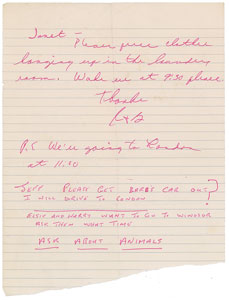 Janet -
Please press clothes
hanging up in the laundry
room. Wake me at 9:30 please
Thanks
P.S We're going to London
at 11.30
JEFF PLEASE GET BOBBY CAR OUT?
I WILL DRIVE TO LONDON
AND WANT TO GO TO WINDSOR
ASK THEM WHAT TIME
ASK ABOUT ANIMALS